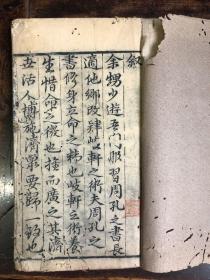 叙
余甥少遊吾门服習周孔之書長
適他鄉改肄岐軒之術夫周孔之
書修身立命之精也岐軒之術養
生惜命之後也推而廣之其濟
世活人博施濟眾要歸一致也